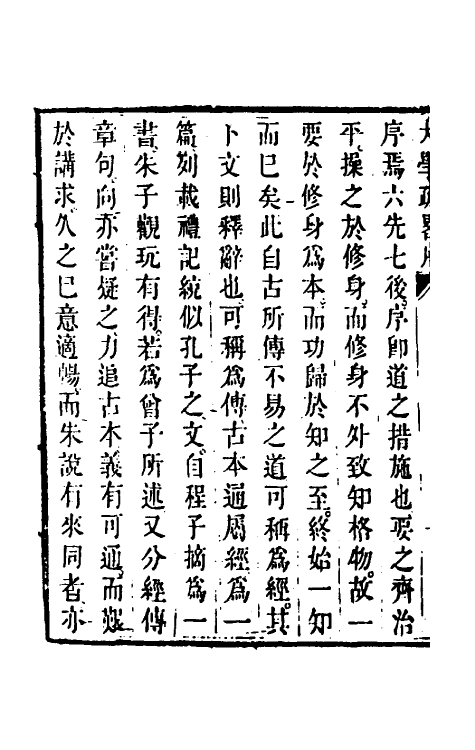 序焉六先七後序即道之措施也要之齊治
平操之於修身而修身不外致知格物故一
要於修身爲本而功歸於知之至終始一知
而已矣此自古所傳不易之道可稱爲經其
卜文則釋辭也可稱爲傳古本通屬經爲一
篇列載禮記統似孔子之文自程子摘爲一
書朱子觀玩有得若爲曾子所述又分經傳
章句向亦嘗疑之力追古本義有可通而艱
於講求久之已意適暢而朱說有來同者亦